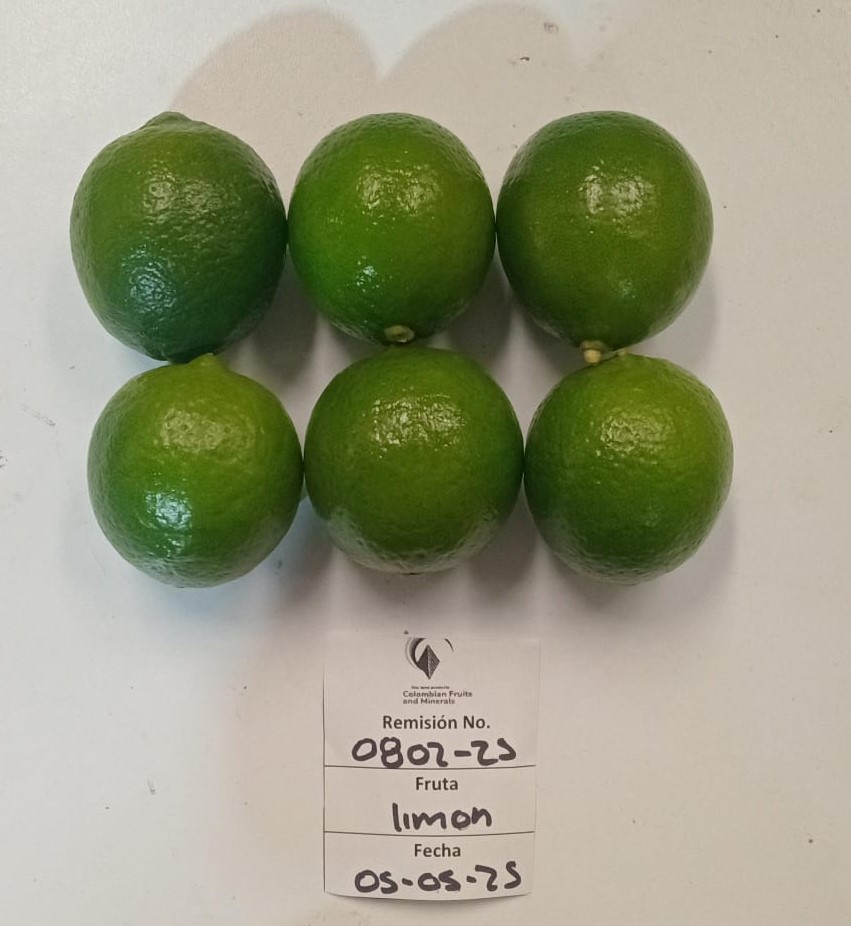 Colombian Fruits
and Minerals
Remisión No.
0802-25
Fruta
limon
Fecha
05-05-25